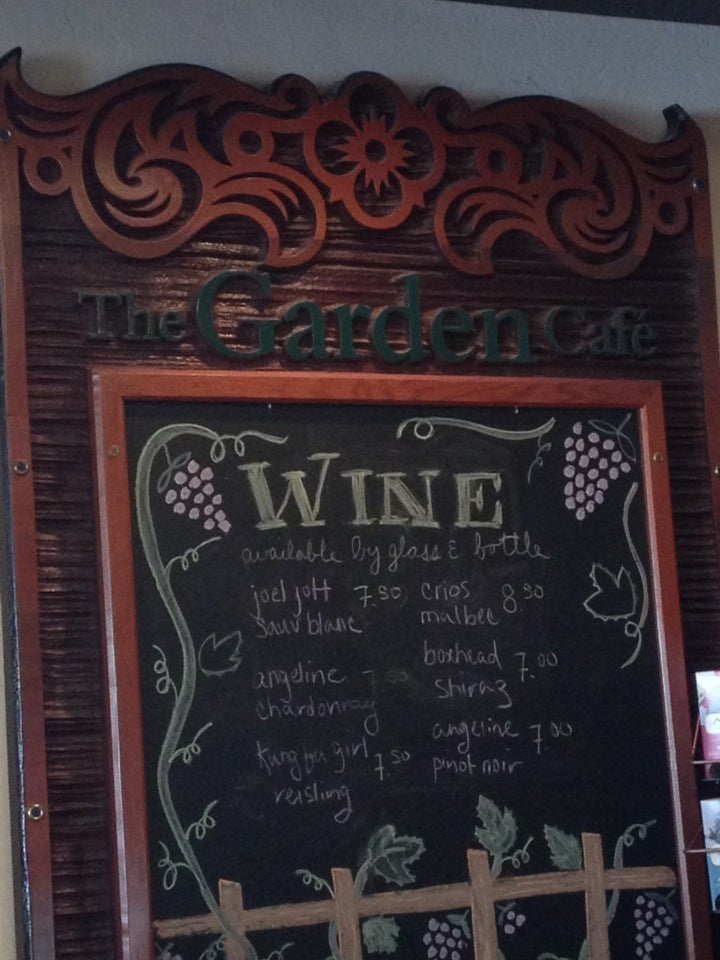 The Garden Café
WINE
available by glass & bottle
joel gott 7.50
sauv blanc
angeline 7.50
chardonnay
Kung fu girl 7.50
reisling
crios 8.50
malbec
boxhead 7.00
shiraz
angeline 7.00
pinot noir